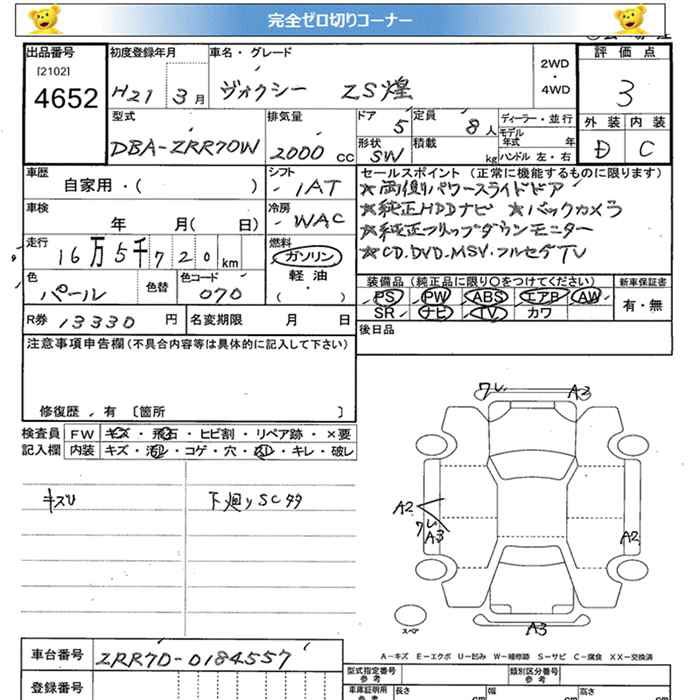 完全ゼロ切りコーナー
出品番号
[2102]
4652
初度登録年月
H21 3月
車名・グレード
ヴォクシー ZS煌
2WD
・
4WD
評価点
3
外装 内装
D C
型式
DBA-ZRR70W
排気量
2000 cc
ドア 5
定員 8人
形状 SW
積載 kg
ディーラー・並行
モデル年式 年
ハンドル 左・右
車歴
自家用・( )
シフト
IAT
セールスポイント (正常に機能するものに限ります)
★両側パワースライドドア
★純正HDDナビ ★バックカメラ
★純正フリップダウンモニター
★CD.DVD.MSV.フルセグTV
車検
年 月( 日)
冷房
WAC
走行
16万5千720km
燃料
ガソリン
軽油
( ・ )
色
パール
色替
色コード
070
装備品 (純正品に限り○をつけてください)
PS PW ABS エアB AW
SR ナビ TV カワ
新車保証書
有・無
R券 13330 円
名変期限 月 日
後日品
注意事項申告欄(不具合内容等は具体的に記入して下さい)
修復歴 . 有 〔箇所 〕
検査員 FW キズ・飛石・ヒビ割・リペア跡・×要
記入欄 内装 キズ・汚れ・コゲ・穴・・キレ・破レ
キズU
下廻りSCササ
ワレ A3
A2
ワレ
A3
A2
スペア
A3
A-キズ E-エクボ U-凹み W-補修跡 S-サビ C-腐食 XX-交換済
車台番号 ZRR70-0184557
登録番号
型式指定番号
参考
類別区分番号
参考
車庫証明用
参考
長さ cm
幅 cm
高さ cm